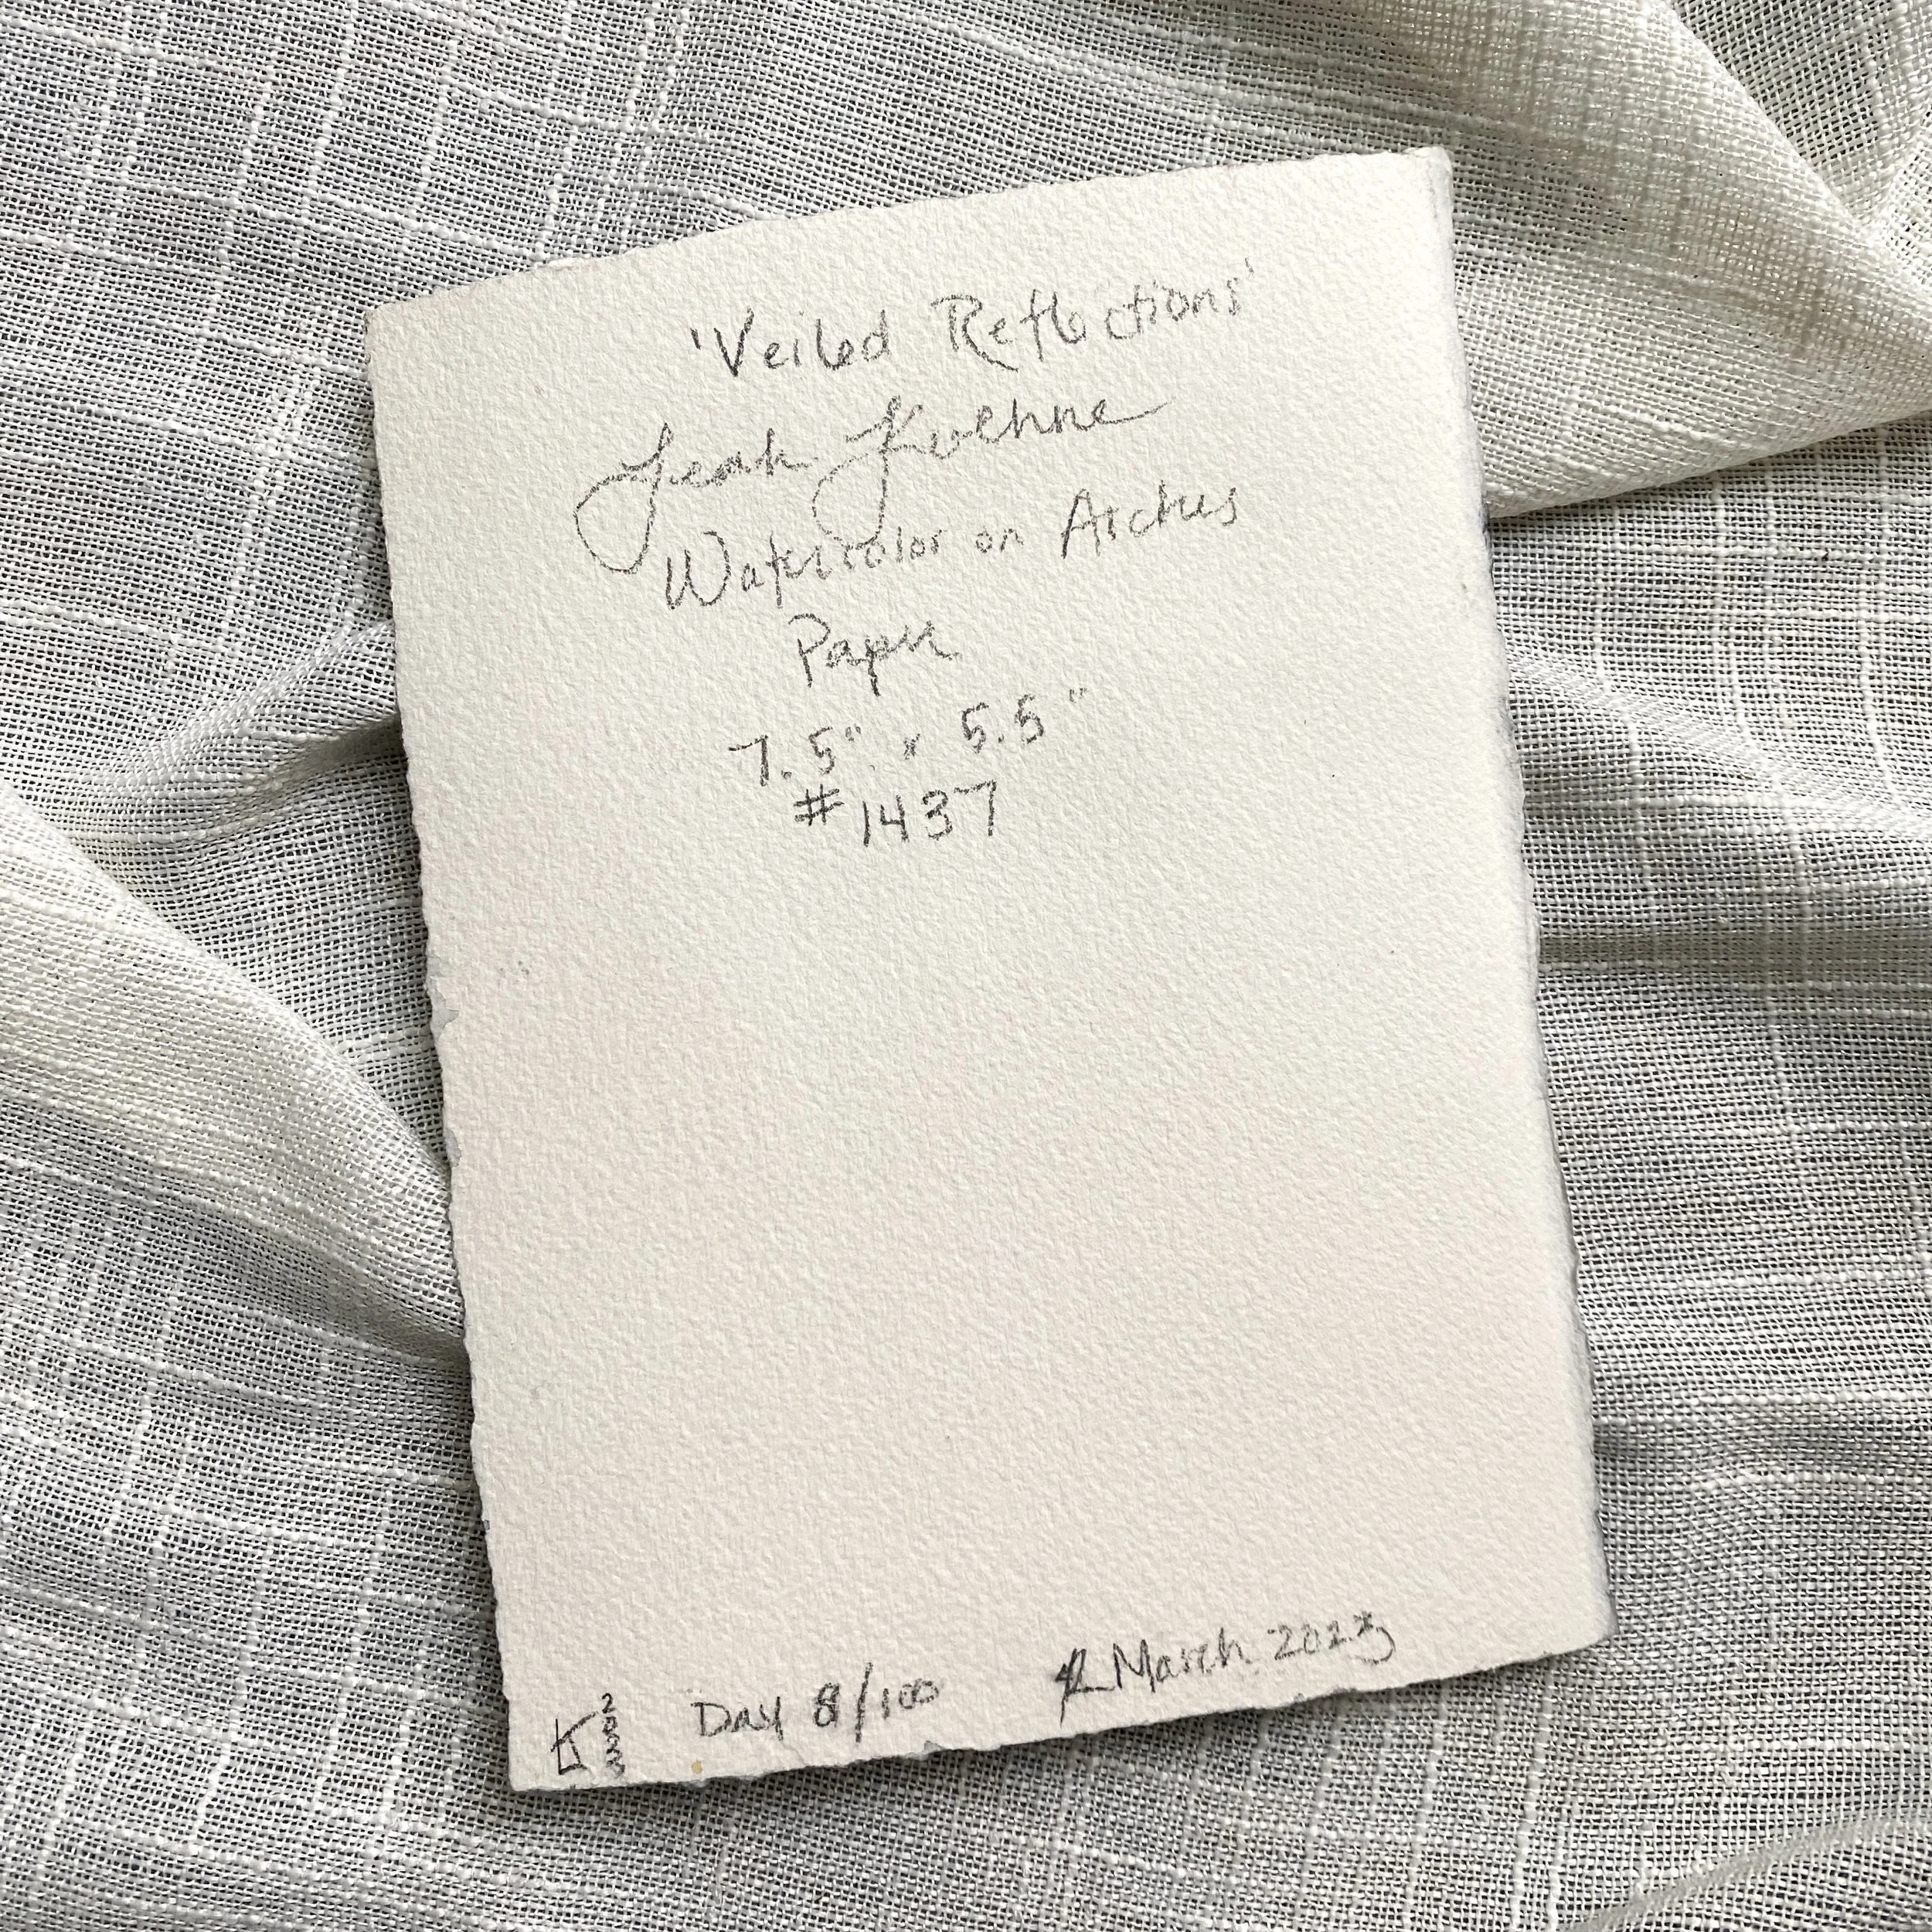 'Veiled Reflections'
Leah Kuehne
Watercolor on Arches
Paper
7.5" x 5.5"
#1437
Day 8/100 March 2023
2023